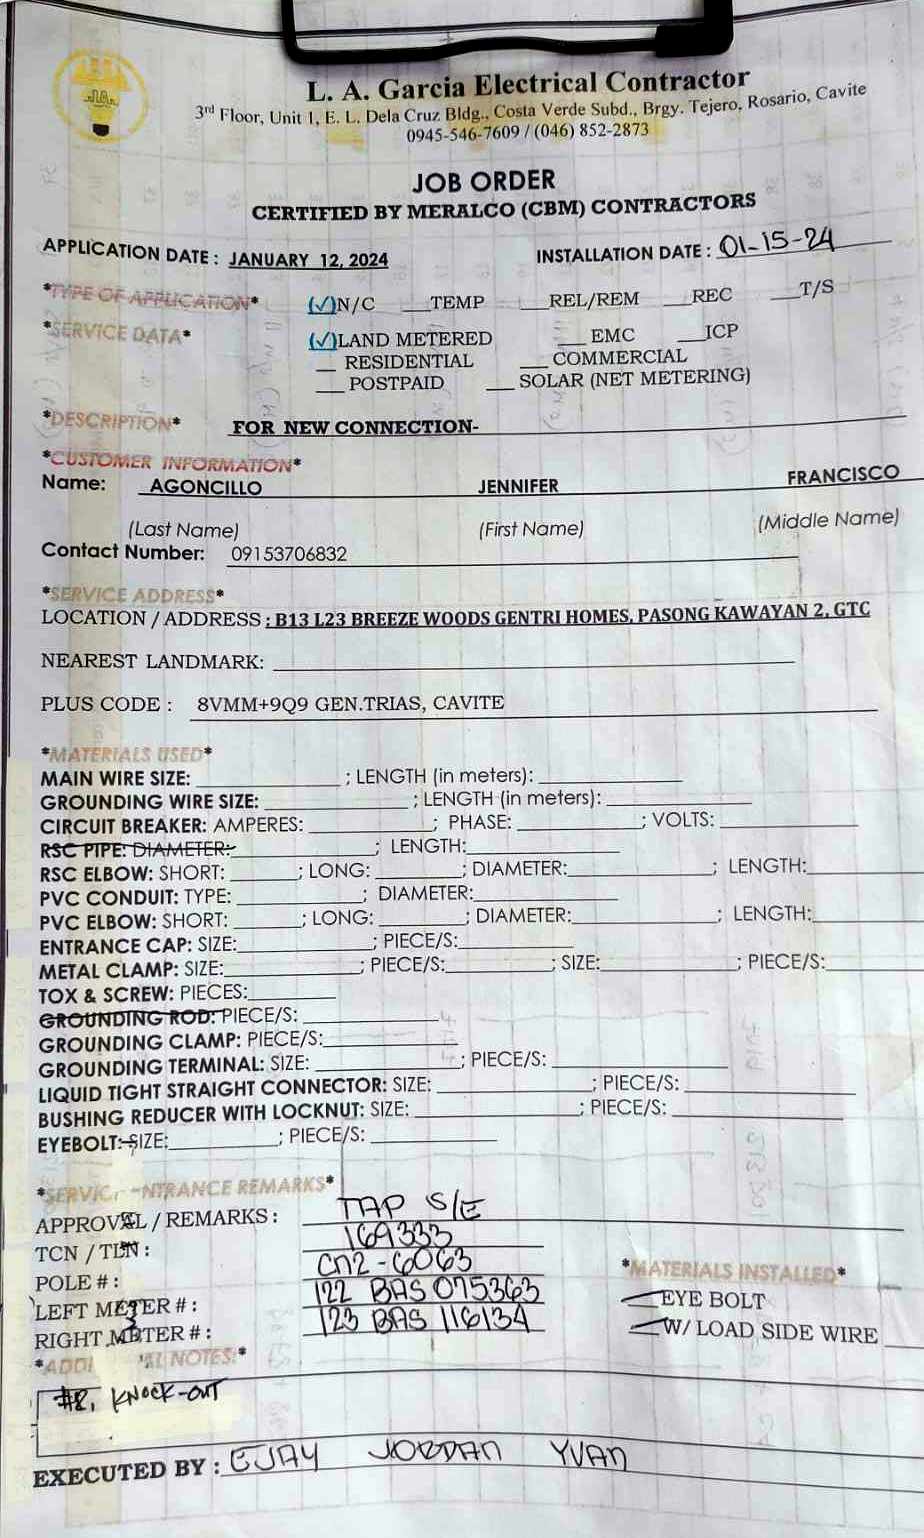 L. A. Garcia Electrical Contractor
3rd Floor, Unit 1, E. L. Dela Cruz Bldg., Costa Verde Subd., Brgy. Tejero, Rosario, Cavite
0945-546-7609 / (046) 852-2873
JOB ORDER
CERTIFIED BY MERALCO (CBM) CONTRACTORS
APPLICATION DATE : JANUARY 12, 2024 INSTALLATION DATE : 01-15-24
*TYPE OF APPLICATION* (✓)N/C ___TEMP ___REL/REM ___REC ___T/S
*SERVICE DATA* (✓)LAND METERED ___ EMC ___ICP
___ RESIDENTIAL ___ COMMERCIAL
___ POSTPAID ___ SOLAR (NET METERING)
*DESCRIPTION* FOR NEW CONNECTION-
*CUSTOMER INFORMATION*
Name: AGONCILLO JENNIFER FRANCISCO
(Last Name) (First Name) (Middle Name)
Contact Number: 09153706832
*SERVICE ADDRESS*
LOCATION / ADDRESS : B13 L23 BREEZE WOODS GENTRI HOMES, PASONG KAWAYAN 2, GTC
NEAREST LANDMARK:
PLUS CODE : 8VMM+9Q9 GEN.TRIAS, CAVITE
*MATERIALS USED*
MAIN WIRE SIZE: ; LENGTH (in meters):
GROUNDING WIRE SIZE: ; LENGTH (in meters):
CIRCUIT BREAKER: AMPERES: ; PHASE: ; VOLTS:
RSC PIPE: DIAMETER: ; LENGTH:
RSC ELBOW: SHORT: ; LONG: ; DIAMETER: ; LENGTH:
PVC CONDUIT: TYPE: ; DIAMETER:
PVC ELBOW: SHORT: ; LONG: ; DIAMETER: ; LENGTH:
ENTRANCE CAP: SIZE: ; PIECE/S:
METAL CLAMP: SIZE: ; PIECE/S: ; SIZE: ; PIECE/S:
TOX & SCREW: PIECES:
GROUNDING ROD: PIECE/S:
GROUNDING CLAMP: PIECE/S:
GROUNDING TERMINAL: SIZE: ; PIECE/S:
LIQUID TIGHT STRAIGHT CONNECTOR: SIZE: ; PIECE/S:
BUSHING REDUCER WITH LOCKNUT: SIZE: ; PIECE/S:
EYEBOLT: SIZE: ; PIECE/S:
*SERVIC NTRANCE REMARKS*
APPROVAL / REMARKS : TAP S/E
TCN / TLN : 169333
POLE # : CM2-6063
LEFT METER # : 122 BAS 075363
RIGHT METER # : 123 BAS 116134
*MATERIALS INSTALLED*
EYE BOLT
W/ LOAD SIDE WIRE
*ADDI AL NOTES:*
#8, KNOCK-OUT
EXECUTED BY : EJAY JORDAN YVAN